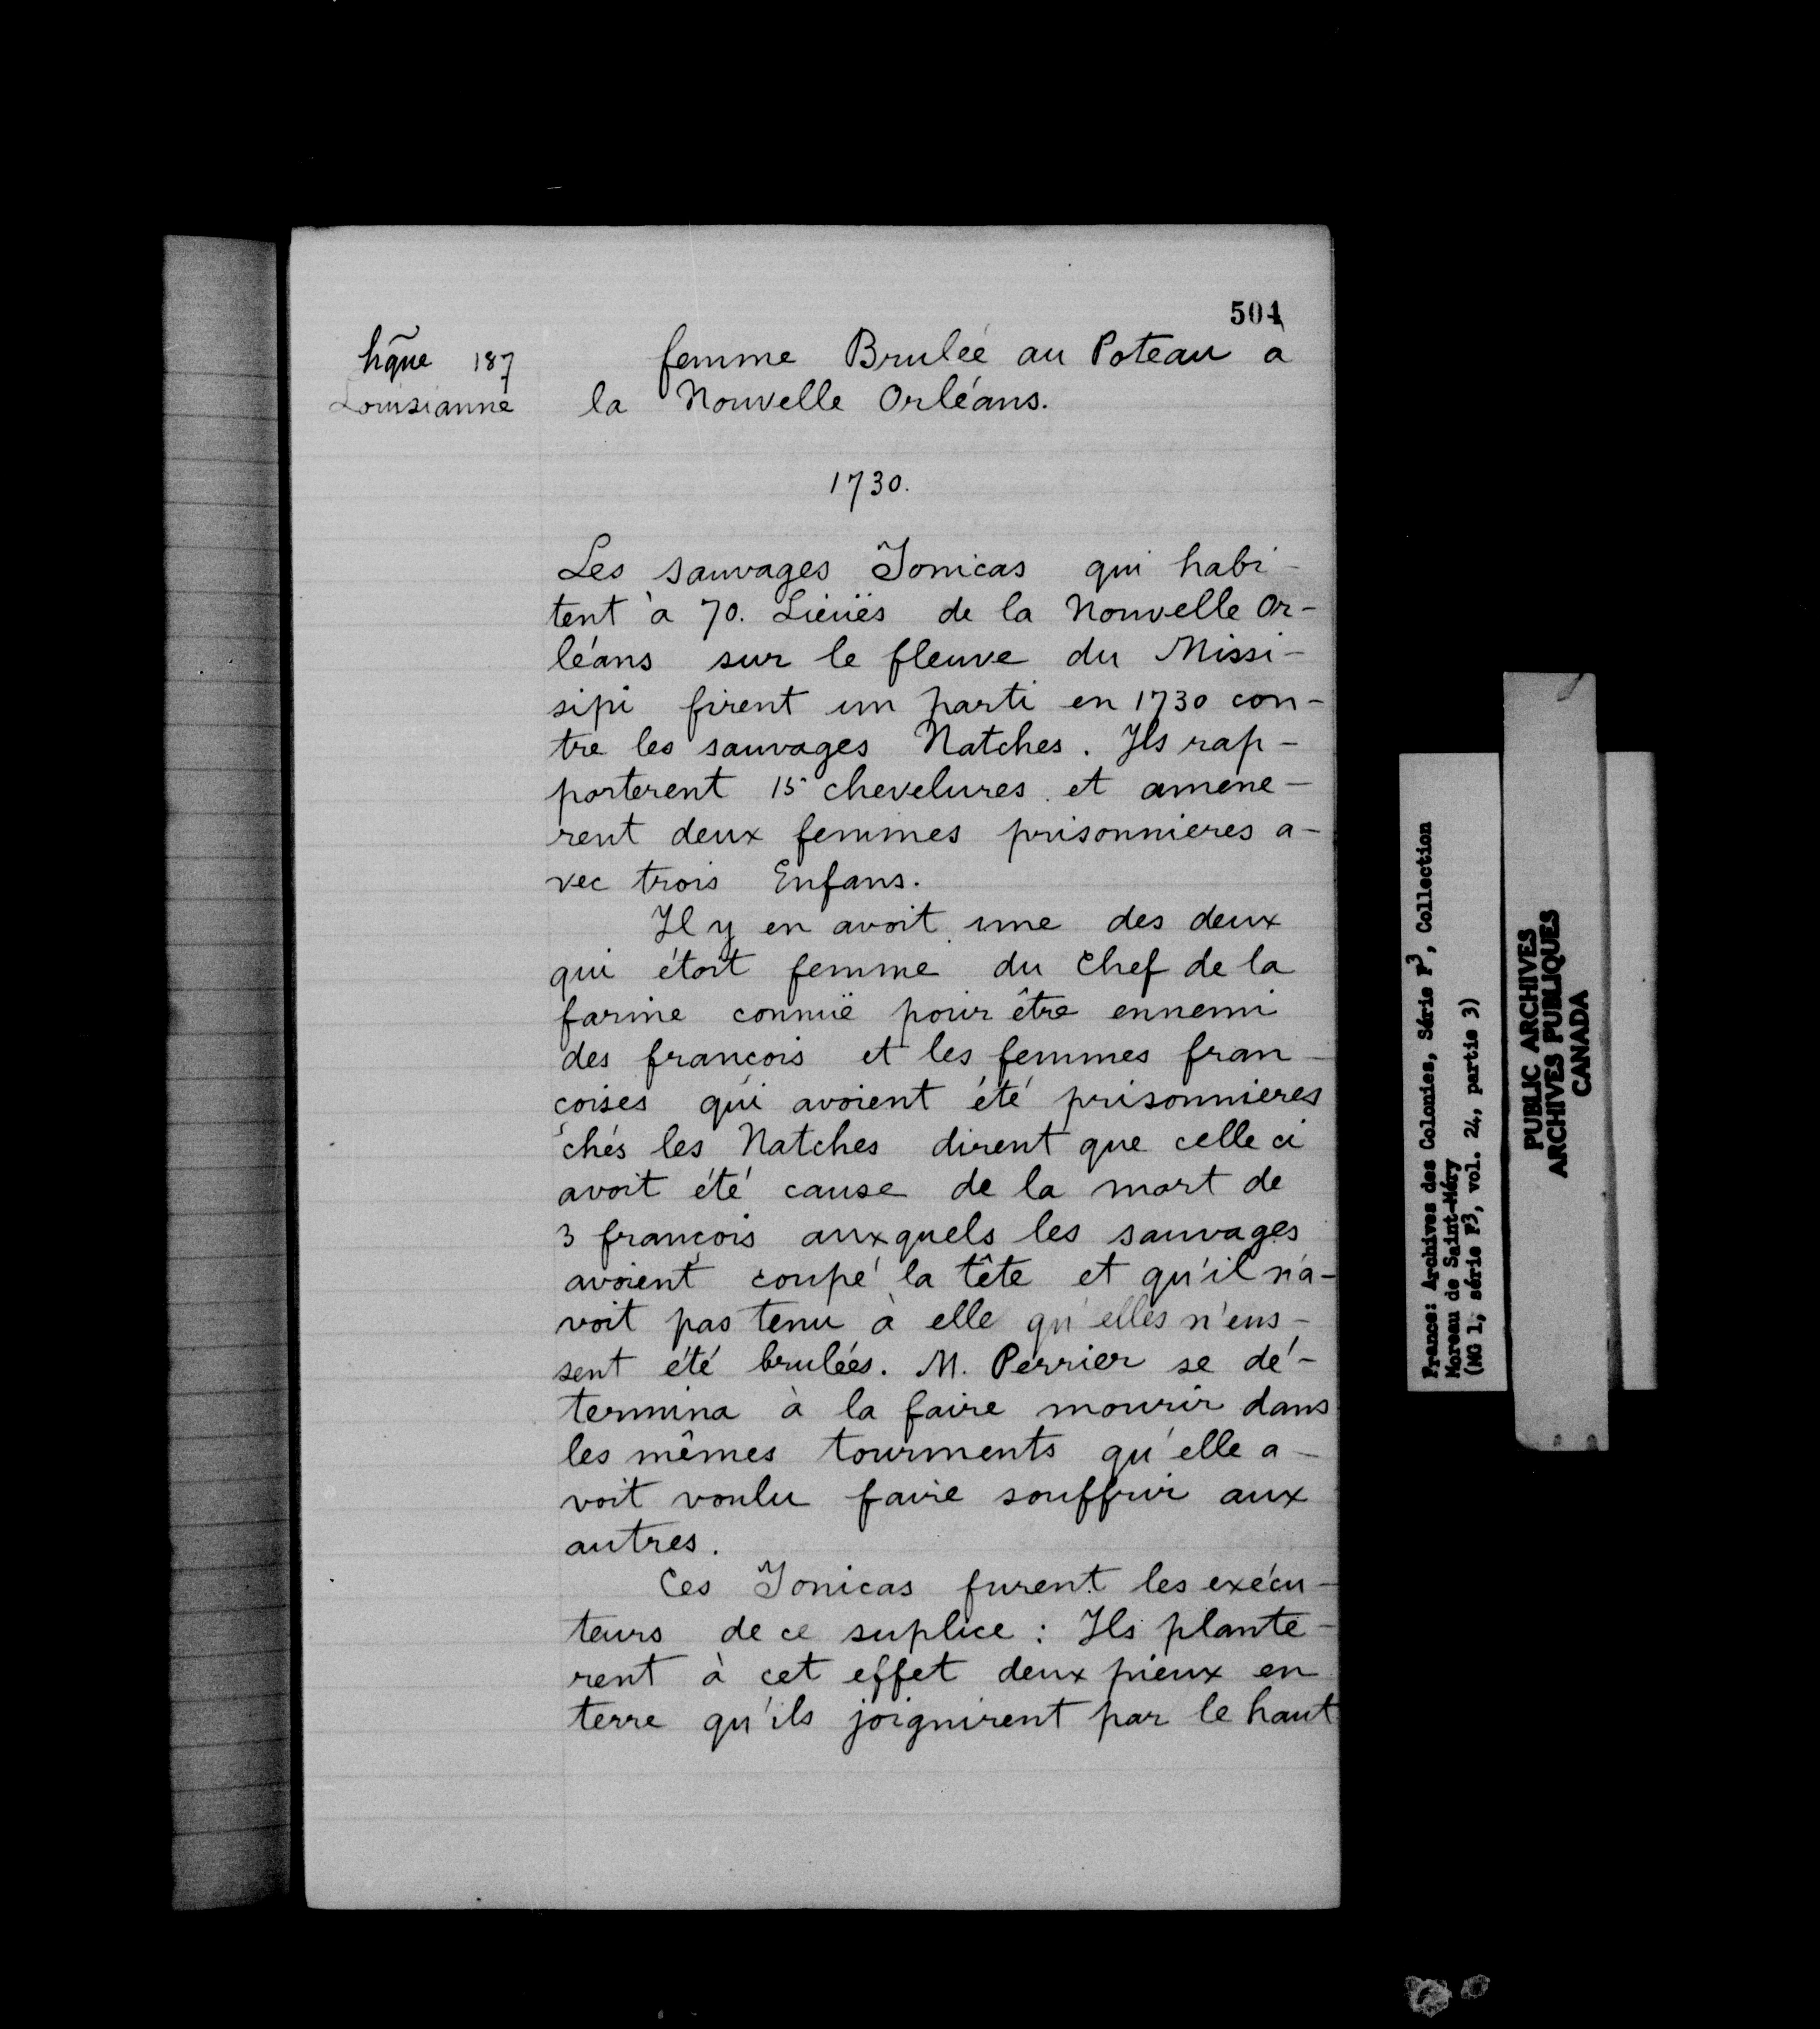 504
hq̃ue 187
Louisianne
femme Brulée au Poteau a
la Nouvelle Orléans.
1730.
Les sauvages Tonicas qui habi-
tent à 70. Lieües de la Nouvelle Or-
léans sur le fleuve du Missi-
sipi firent un parti en 1730 con-
tre les sauvages Natches. Ils rap-
porterent 15 chevelures et amene-
rent deux femmes prisonnieres a-
vec trois Enfans.
Il y en avoit une des deux
qui étoit femme du Chef de la
farine connuë pour être ennemi
des françois et les femmes fran-
çoises qui avoient été prisonnieres
chés les Natches dirent que celle ci
avoit été cause de la mort de
3 françois auxquels les sauvages
avoient coupé la tête et qu'il n'a-
voit pas tenu à elle qu'elles n'eus-
sent été brulées. M. Perrier se dé-
termina à la faire mourir dans
les mêmes tourments qu'elle a-
voit voulu faire souffrir aux
autres.
Ces Tonicas furent les exécu-
teurs de ce suplice : Ils plante-
rent à cet effet deux pieux en
terre qu'ils joignirent par le haut
France: Archives des Colonies, Série F3, Collection
Moreau de Saint-Méry
(MG 1, série F3, vol. 24, partie 3)
PUBLIC ARCHIVES
ARCHIVES PUBLIQUES
CANADA